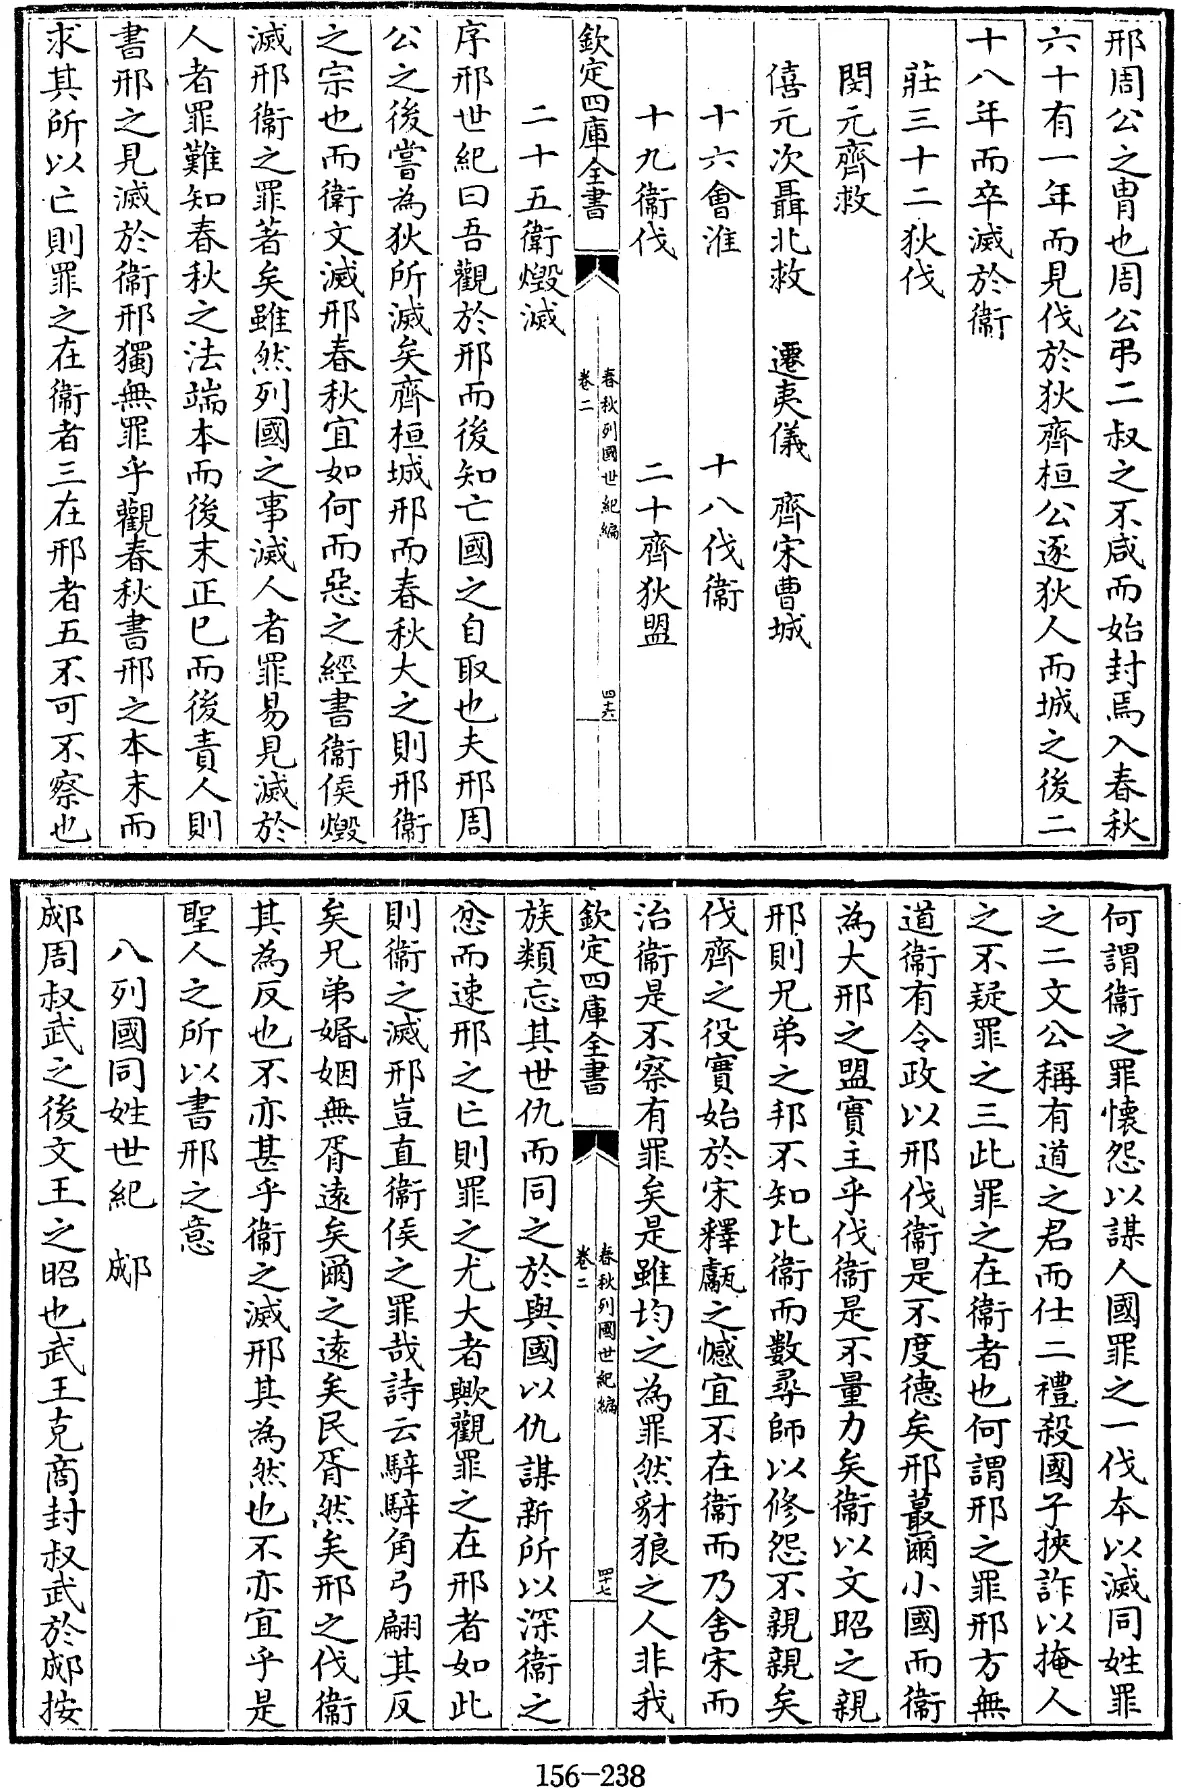 邢周公之胄也周公弔二叔之不咸而始封焉入春秋
六十有一年而見伐於狄齊桓公逐狄人而城之後二
十八年而卒滅於衞
莊三十二狄伐
閔元齊救
僖元次聶北救　遷夷儀　齊宋曹城
十六會淮　十八伐衞
十九衞伐　二十齊狄盟
欽定四庫全書
春秋列國世紀編
卷二
四十六
二十五衞燬滅
序邢世紀曰吾觀於邢而後知亡國之自取也夫邢周
公之後嘗為狄所滅矣齊桓城邢而春秋大之則邢衞
之宗也而衞文滅邢春秋宜如何而惡之經書衞侯燬
滅邢衞之罪著矣雖然列國之事滅人者罪易見滅於
人者罪難知春秋之法端本而後末正已而後責人則
書邢之見滅於衞邢獨無罪乎觀春秋書邢之本末而
求其所以亡則罪之在衞者三在邢者五不可不察也
何謂衞之罪懐怨以謀人國罪之一伐本以滅同姓罪
之二文公稱有道之君而仕二禮殺國子挾詐以掩人
之不疑罪之三此罪之在衞者也何謂邢之罪邢方無
道衞有令政以邢伐衞是不度德矣邢蕞爾小國而衞
為大邢之盟實主乎伐衞是不量力矣衞以文昭之親
邢則兄弟之邦不知比衞而數尋師以修怨不親親矣
伐齊之役實始於宋釋甗之憾宜不在衞而乃舍宋而
治衞是不察有罪矣是雖均之為罪然豺狼之人非我
欽定四庫全書
春秋列國世紀編
卷二
四十七
族類忘其世仇而同之於與國以仇謀新所以深衞之
忿而速邢之亡則罪之尤大者歟觀罪之在邢者如此
則衞之滅邢豈直衞侯之罪哉詩云騂騂角弓翩其反
矣兄弟婚姻無胥遠矣爾之遠矣民胥然矣邢之伐衞
其為反也不亦甚乎衞之滅邢其為然也不亦宜乎是
聖人之所以書邢之意
八列國同姓世紀　郕
郕周叔武之後文王之昭也武王克商封叔武於郕按
156-238